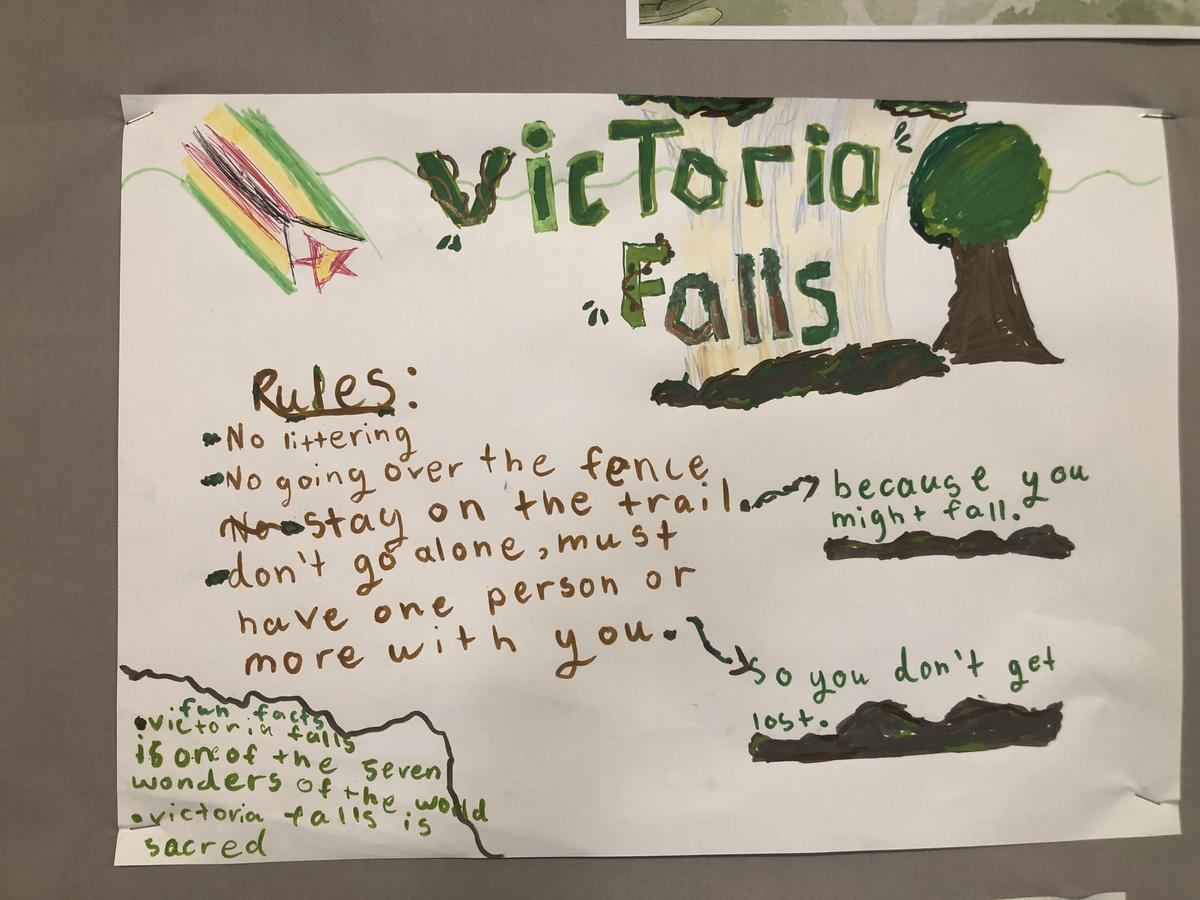 Victoria
Falls
Rules:
No littering
No going over the fence
No stay on the trail.
because you
might fall.
don't go alone, must
have one person or
more with you.
So you don't get
lost.
fun facts
•victoria falls
is one of the seven
wonders of the world
•victoria falls is
sacred